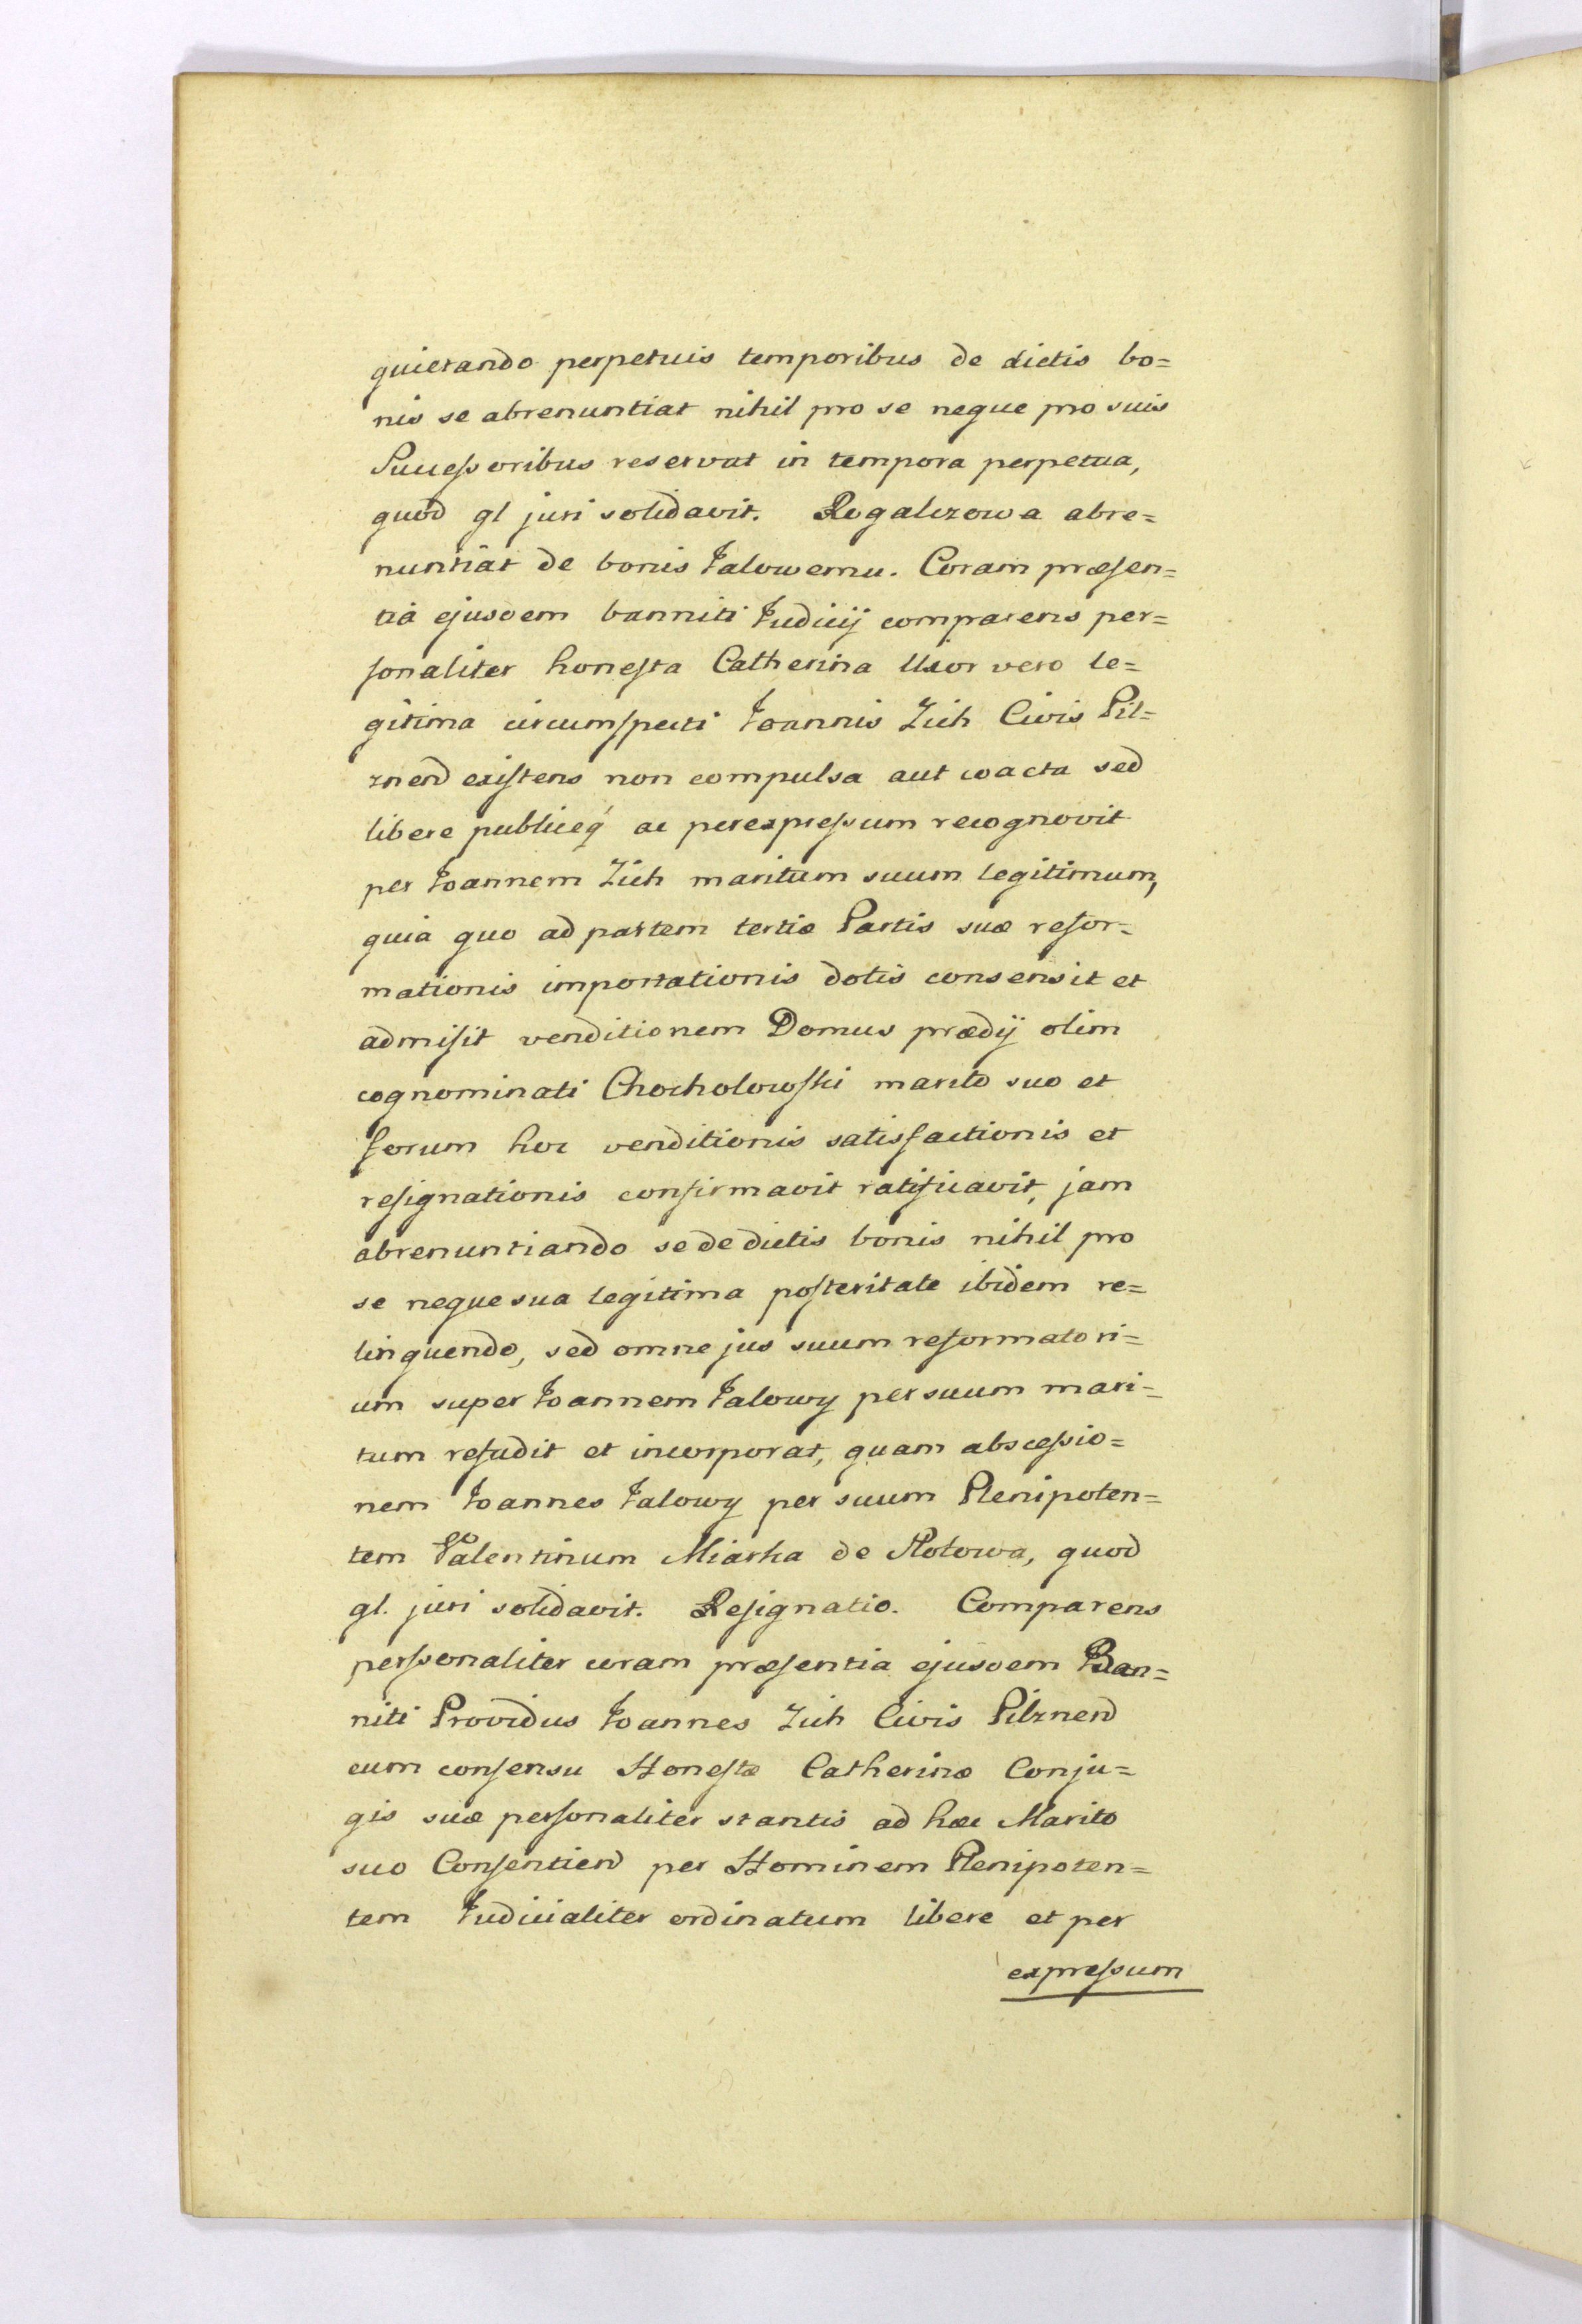 quietando perpetuis temporibus de dictis bo=
nis se abrenuntiat nihil pro se neque pro suis
Succeſsoribus reservat in tempora perpetua,
quod gl juri solidavit. Rogalczowa abre=
nuntiat de bonis Jalowemu. Coram præſen=
tia ejusdem banniti Judicij comparens per=
ſonaliter honeſta Catherina Uxor vero le=
gitima circumſpecti Joannis Zich Civis Pil=
znend exiſtens non compulsa aut coacta sed
libere publiceq́ ac perexpreſsum recognovit
per Joannem Zich maritum suum legitimum,
quia quo ad partem tertiæ Partis suæ refor=
mationis importationis dotis consensit et
admiſit venditionem Domus prædij olim
cognominati Chocholowſki marito suo et
forum hoc venditionis satisfactionis et
reſignationis confirmavit ratificavit, jam
abrenuntiando se de dictis bonis nihil pro
se neque sua legitima poſteritate ibidem re=
linquendo, sed omne jus suum reformatori=
um super Joannem Jalowy per suum mari=
tum refudit et incorporat, quam absceſsio=
nem Joannes Jalowy per suum Plenipoten=
tem Valentinum Miarka de Motowa, quod
gl. juri solidavit. Reſignatio. Comparens
perſsonaliter coram præſentia ejusdem Ban=
niti Providus Joannes Zich Civis Pilznend
cum conſensu Honeſtæ Catherinæ Conju=
gis suæ perſonaliter stantis ad hæc Marito
suo Conſentiend per Hominem Plenipoten=
tem Judicialiter ordinatum libere et per
expreſsum